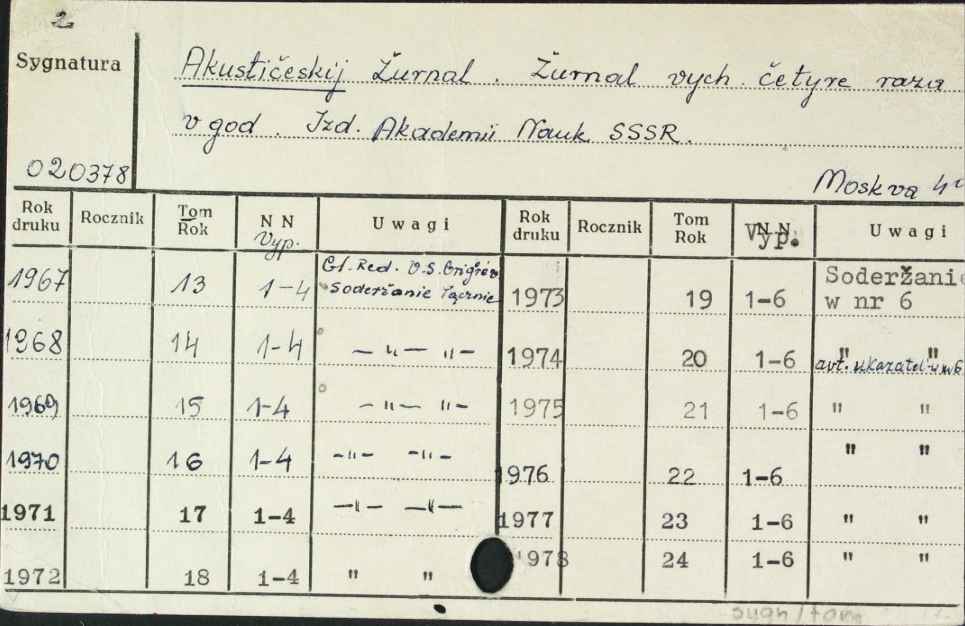 2
Sygnatura
Akustičeskij Žurnal. Žurnal vych. četyre raza
v god. Izd. Akademii Nauk SSSR.
020378
Moskva 4°
Rok druku Rocznik Tom Rok N N Vyp. Uwagi Rok druku Rocznik Tom Rok N N Vyp. Uwagi
1967 13 1-4 Gl. Red. Soderžanie łącznie 1973 19 1-6 Soderžanie w nr 6
1968 14 1-4 — " — " — 1974 20 1-6 " " avt. ukazatel' w nr 6
1969 15 1-4 — " — " — 1975 21 1-6 " "
1970 16 1-4 - " - - " - 1976 22 1-6 " "
1971 17 1-4 — " — — " — 1977 23 1-6 " "
1972 18 1-4 " " 1978 24 1-6 " "